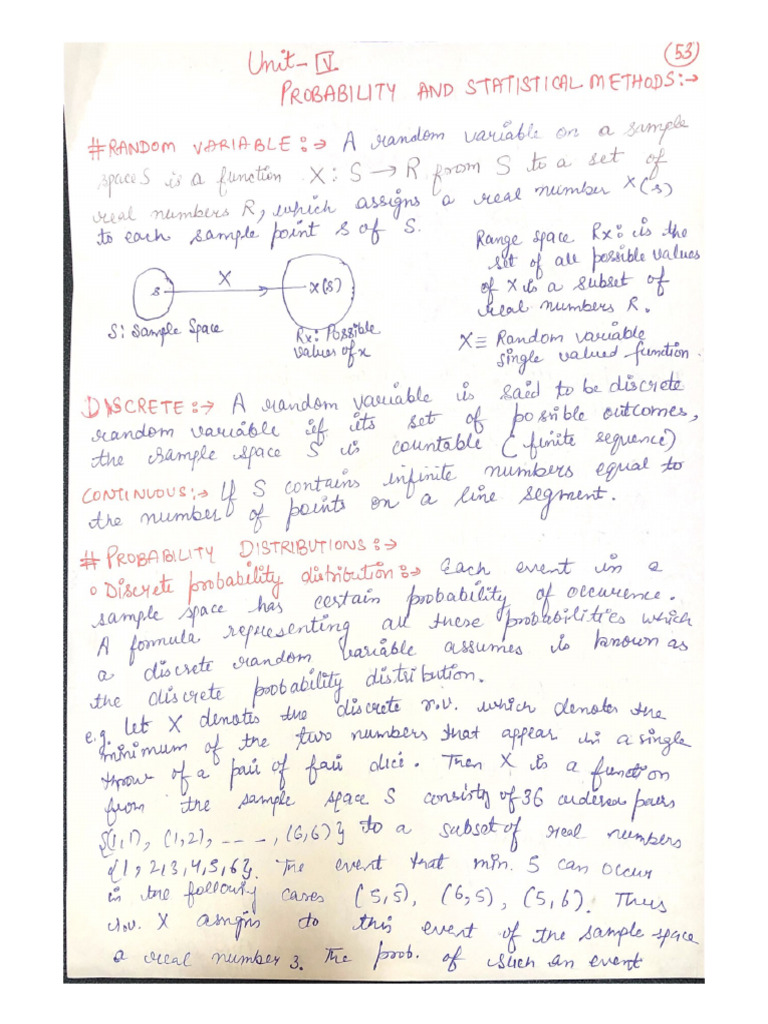 Unit-V
53
PROBABILITY AND STATISTICAL METHODS:→
#RANDOM VARIABLE:→ A random variable on a sample
space S is a function X: S → R from S to a set of
real numbers R, which assigns a real number X(s)
to each sample point s of S.
s X X(s)
S: Sample Space
Rx: Possible
values of x
Range space Rx: is the
set of all possible values
of X is a subset of
real numbers R.
X ≡ Random variable
single valued function.
DISCRETE:→ A random variable is said to be discrete
random variable if its set of possible outcomes,
the sample space S is countable (finite sequence)
CONTINUOUS:→ If S contains infinite numbers equal to
the number of points on a line segment.
# PROBABILITY DISTRIBUTIONS:→
o Discrete probability distribution:→ Each event in a
sample space has certain probability of occurence.
A formula representing all these probabilities which
a discrete random variable assumes is known as
the discrete probability distribution.
e.g. let X denotes the discrete r.v. which denotes the
minimum of the two numbers that appear in a single
throw of a pair of fair dice. Then X is a function
from the sample space S consisty of 36 ordered pairs
{(1,1), (1,2), ----, (6,6)} to a subset of real numbers
{1, 2, 3, 4, 5, 6}. The event that min. 5 can occur
in the following cases (5,5), (6,5), (5,6). Thus
r.v. X assigns to this event of the sample space
a real number 3. The prob. of such an event